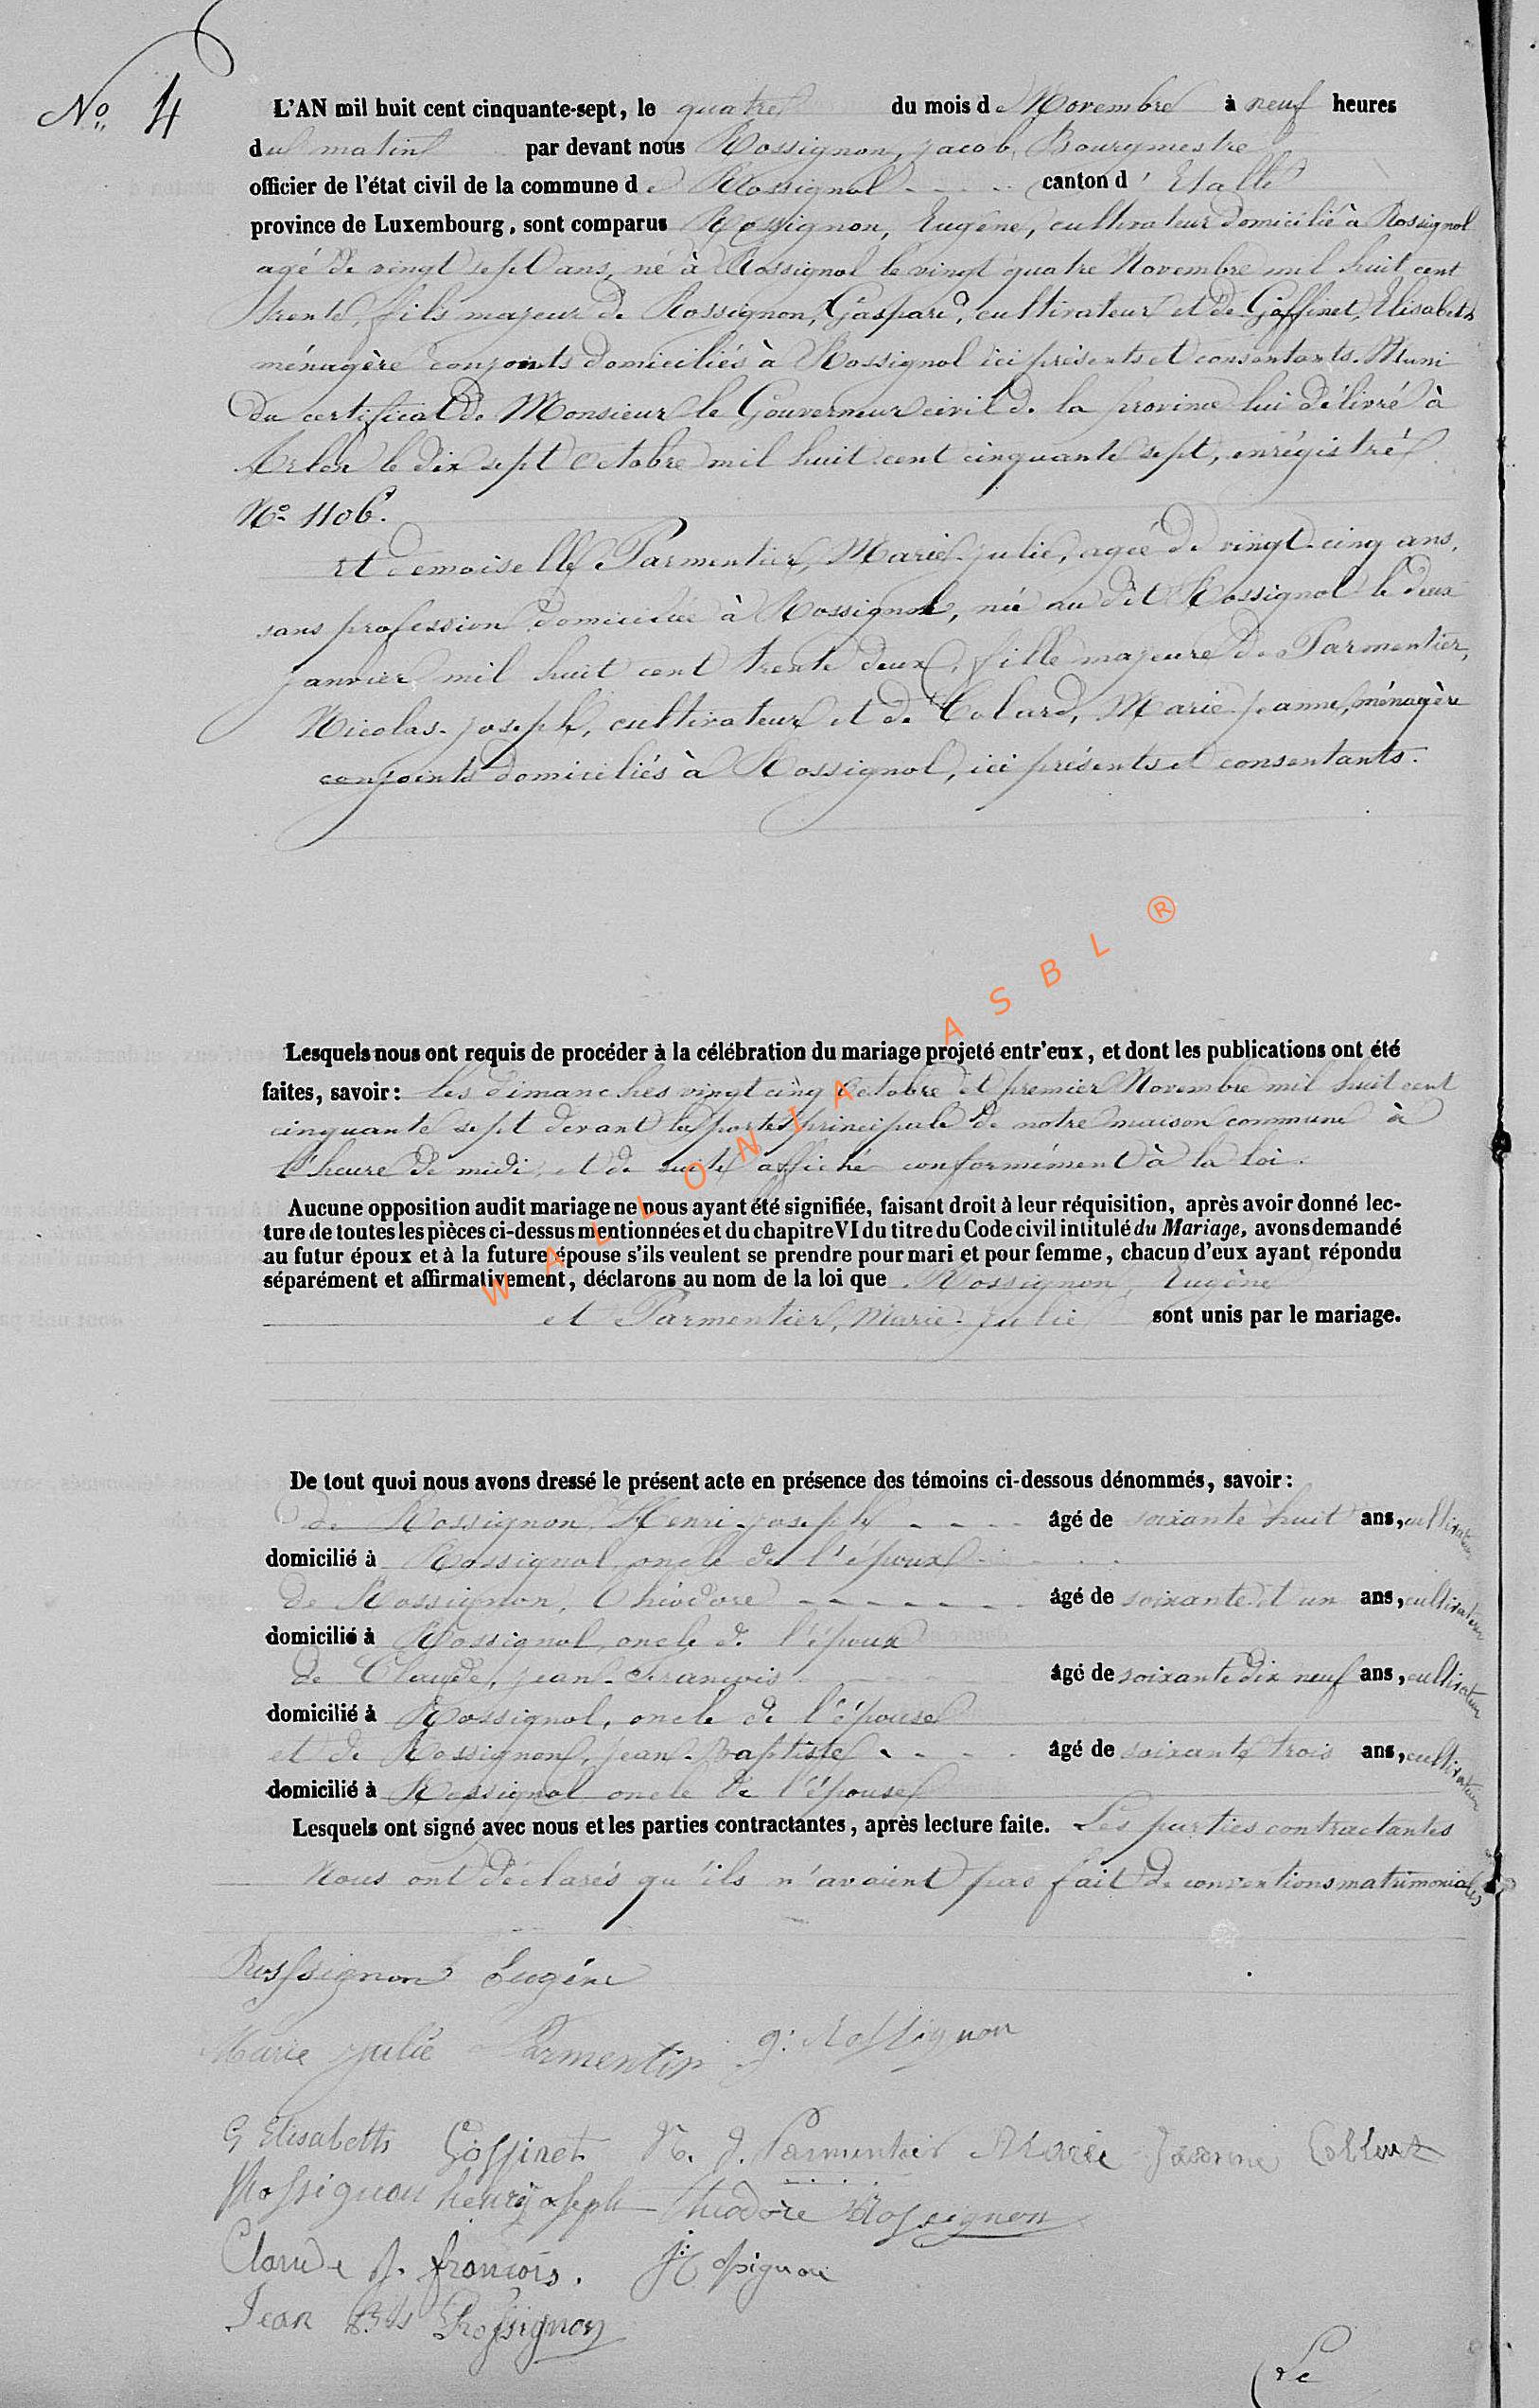 No 4
L'AN mil huit cent cinquante-sept, le quatre du mois de Novembre à neuf heures
du matin par devant nous Rossignon, Jacob, Bourgmestre
officier de l'état civil de la commune de Rossignol canton d'Etalle
province de Luxembourg, sont comparus Rossignon, Eugène, cultivateur domicilié à Rossignol
agé de vingt sept ans, né à Rossignol le vingt quatre Novembre mil huit cent
trente, fils majeur de Rossignon, Gaspard, cultivateur et de Goffinet, Elisabeth
ménagère conjoints domiciliés à Rossignol ici présents et consentants. Muni
du certificat de Monsieur le Gouverneur civil de la province lui délivré à
Arlon le dix sept Octobre mil huit cent cinquante sept, enrégistré
No 1106.
et demoiselle Parmentier, Marie-Julie, agée de vingt-cinq ans,
sans profession domiciliée à Rossignol, née au dit Rossignol le deux
janvier mil huit cent trente deux, fille majeure de Parmentier,
Nicolas-Joseph, cultivateur et de Colard, Marie-Jeanne, ménagère
conjoints domiciliés à Rossignol, ici présents et consentants.
Lesquels nous ont requis de procéder à la célébration du mariage projeté entr'eux, et dont les publications ont été
faites, savoir: les dimanches vingt cinq Octobre et premier Novembre mil huit cent
cinquante sept devant la porte principale de notre maison commune à
l'heure de midi, et de suite affiché conformément à la loi.
Aucune opposition audit mariage ne nous ayant été signifiée, faisant droit à leur réquisition, après avoir donné lec-
ture de toutes les pièces ci-dessus mentionnées et du chapitre VI du titre du Code civil intitulé du Mariage, avons demandé
au futur époux et à la future épouse s'ils veulent se prendre pour mari et pour femme, chacun d'eux ayant répondu
séparément et affirmativement, déclarons au nom de la loi que Rossignon, Eugène
et Parmentier, Marie-Julie sont unis par le mariage.
WALLONIA ASBL ®
De tout quoi nous avons dressé le présent acte en présence des témoins ci-dessous dénommés, savoir:
de Rossignon, Henri-Joseph âgé de soixante huit ans, cultivateur
domicilié à Rossignol, oncle de l'époux
de Rossignon, Théodore âgé de soixante et un ans, cultivateur
domicilié à Rossignol, oncle de l'époux
de Claude, Jean-François âgé de soixante dix neuf ans, cultivateur
domicilié à Rossignol, oncle de l'épouse
et de Rossignon, Jean-Baptiste âgé de soixante trois ans, cultivateur
domicilié à Rossignol oncle de l'épouse
Lesquels ont signé avec nous et les parties contractantes, après lecture faite. Les parties contractantes
nous ont déclarés qu'ils n'avaient pas fait de conventions matrimoniales
Rossignon Eugène
Marie julie Parmentier g: Rossignon
G Elisabeth Goffinet N. J. Parmentier Marie Jeanne
Rossignon henry joseph Théodore Rossignon
Claude J. françois.
Jean Bte Rossignon
Le